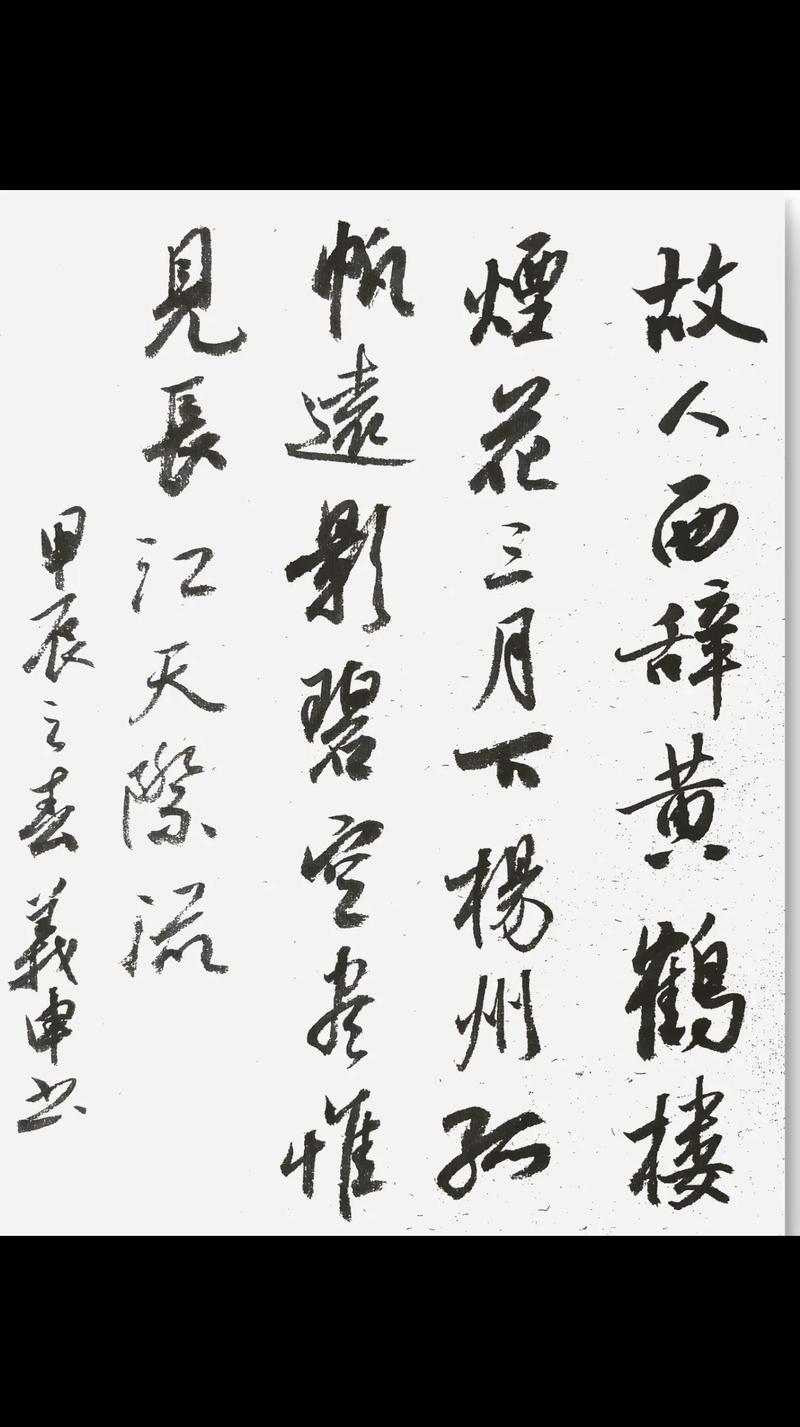 故人西辞黄鹤楼
煙花三月下楊州孤
帆遠影碧空尽惟
見長江天際流
甲辰之春義申书